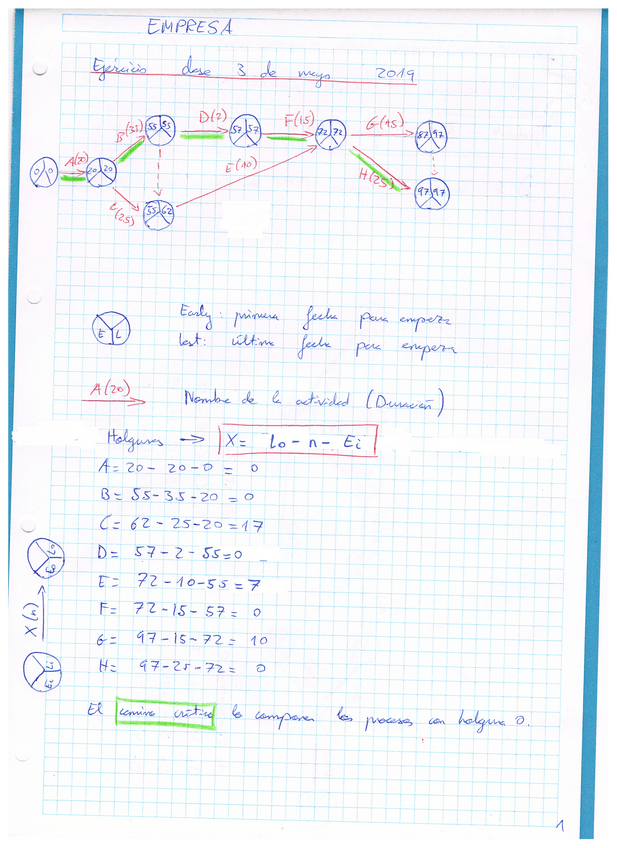 EMPRESA
Ejercicio clase 3 de mayo 2019
A(20) B(35) D(2) F(15) G(15)
C(25) E(10) H(25)
0 0 20 20 55 55 57 57 72 72 87 97
55 62 97 97
Early: primera fecha para empezar
Last: última fecha para empezar
E L
A(20) Nombre de la actividad (Duración)
Holguras → X = Lo - n - Ei
A = 20 - 20 - 0 = 0
B = 55 - 35 - 20 = 0
C = 62 - 25 - 20 = 17
D = 57 - 2 - 55 = 0
E = 72 - 10 - 55 = 7
F = 72 - 15 - 57 = 0
G = 97 - 15 - 72 = 10
H = 97 - 25 - 72 = 0
Eo Lo
X(n)
Ei Li
El camino crítico lo componen los procesos con holgura 0.
1